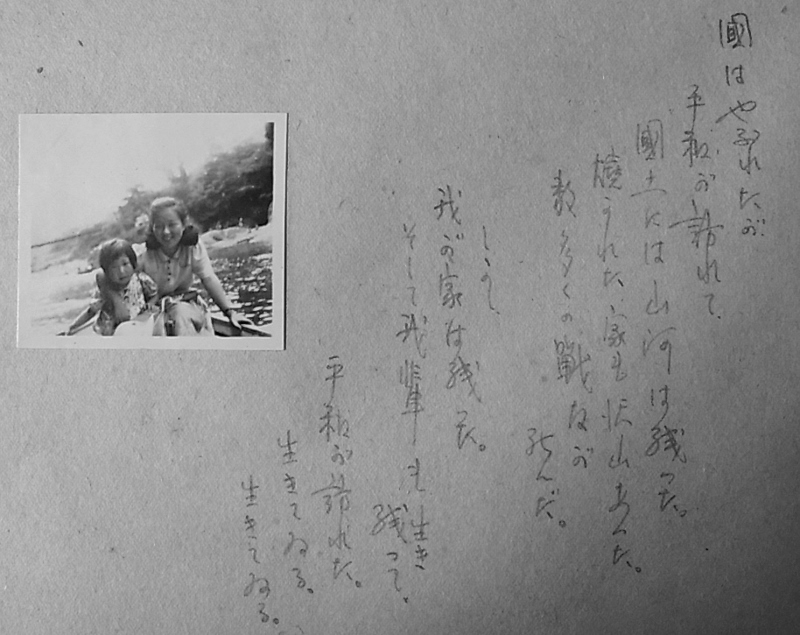 國はやぶれたが
平和が訪れて、
國土には山河は残った。
燒かれた家も沢山あった。
数多くの戰友が
死んだ。
しかし、
我が家は残った。
そして我輩も生き
残って、
平和が訪れた。
生きてゐる。
生きてゐる。